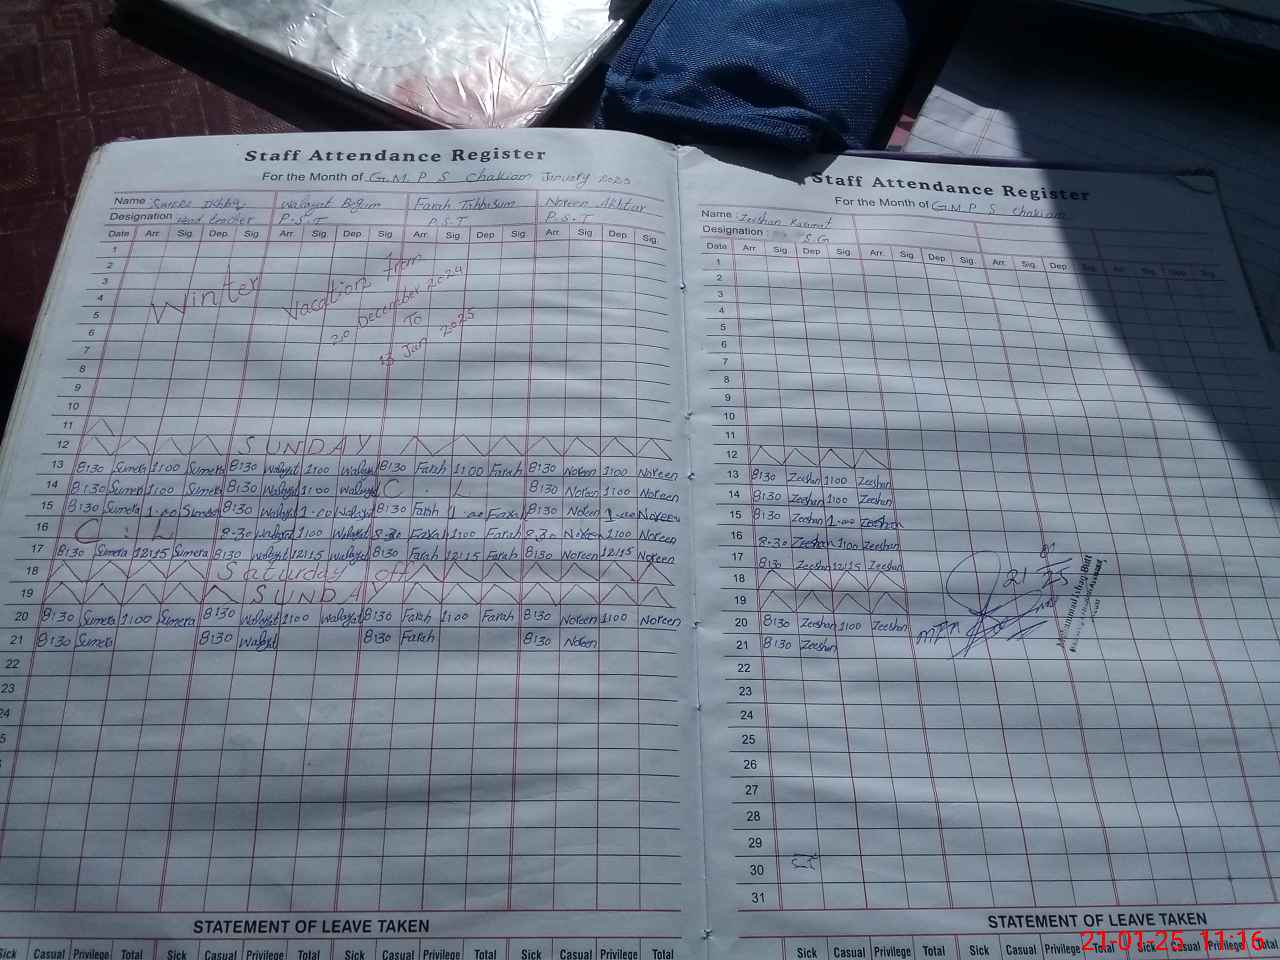 Staff Attendance Register
For the Month of G.M.P S Chakiam Jinuary 2025
Name Walayat Begum Farah Noreen Akhtar
Designation Head teacher P.S.T P.S.T P.S.T
Date Arr. Sig. Dep. Sig. Arr. Sig. Dep Sig. Arr. Sig. Dep Sig. Arr. Sig. Dep. Sig.
1
2
3
4
5
6
7
8
9
10
11
Winter Vacations from
20 December 2024
To
13 Jan 2025
12 SUNDAY
13 8:30 Sumera 1:00 Sumera 8:30 Walayat 1:00 Walayat 8:30 Farah 1:00 Farah 8:30 Noreen 1:00 Noreen
14 8:30 Sumera 1:00 Sumera 8:30 Walayat 1:00 Walayat C . L 8:30 Noreen 1:00 Noreen
15 8:30 Sumera 1.00 Sumera 8:30 Walayat 1.00 Walayat 8:30 Farah 1.00 Farah 8:30 Noreen 1.00 Noreen
16 C : L 8-30 Walayat 1:00 Walayat 8-30 Farah 1:00 Farah 8-30 Noreen 1:00 Noreen
17 8:30 Sumera 12:15 Sumera 8:30 Walayat 12:15 Walayat 8:30 Farah 12:15 Farah 8:30 Noreen 12:15 Noreen
18 Saturday off
19 SUNDA
20 8:30 Sumera 1:00 Sumera 8:30 Walayat 1:00 Walayat 8:30 Farah 1:00 Farah 8:30 Noreen 1:00 Noreen
21 8:30 Sumera 8:30 Walayat 8:30 Farah 8:30 Noreen
22
23
24
STATEMENT OF LEAVE TAKEN
Sick Casual Privilege Total Sick Casual Privilege Total Sick Casual Privilege Total Sick Casual Privilege Total
Staff Attendance Register
For the Month of G.M.P S Chakiam
Name : Zeeshan Karamat
Designation : S.G
Date Arr. Sig. Dep Sig. Arr. Sig. Dep. Sig. Arr. Sig. Dep. Sig. Arr. Sig. Dep. Sig.
1
2
3
4
5
6
7
8
9
10
11
12
13 8:30 Zeeshan 1:00 Zeeshan
14 8:30 Zeeshan 1:00 Zeeshan
15 8:30 Zeeshan 1.00 Zeeshan
16 8-30 Zeeshan 1:00 Zeeshan
17 8:30 Zeeshan 12:15 Zeeshan
18
19
20 8:30 Zeeshan 1:00 Zeeshan
21 8:30 Zeeshan
22
23
24
25
26
27
28
29
30
31
STATEMENT OF LEAVE TAKEN
Sick Casual Privilege Total Sick Casual Privilege Total Sick Casual Privilege Total
21-01-25 11:16